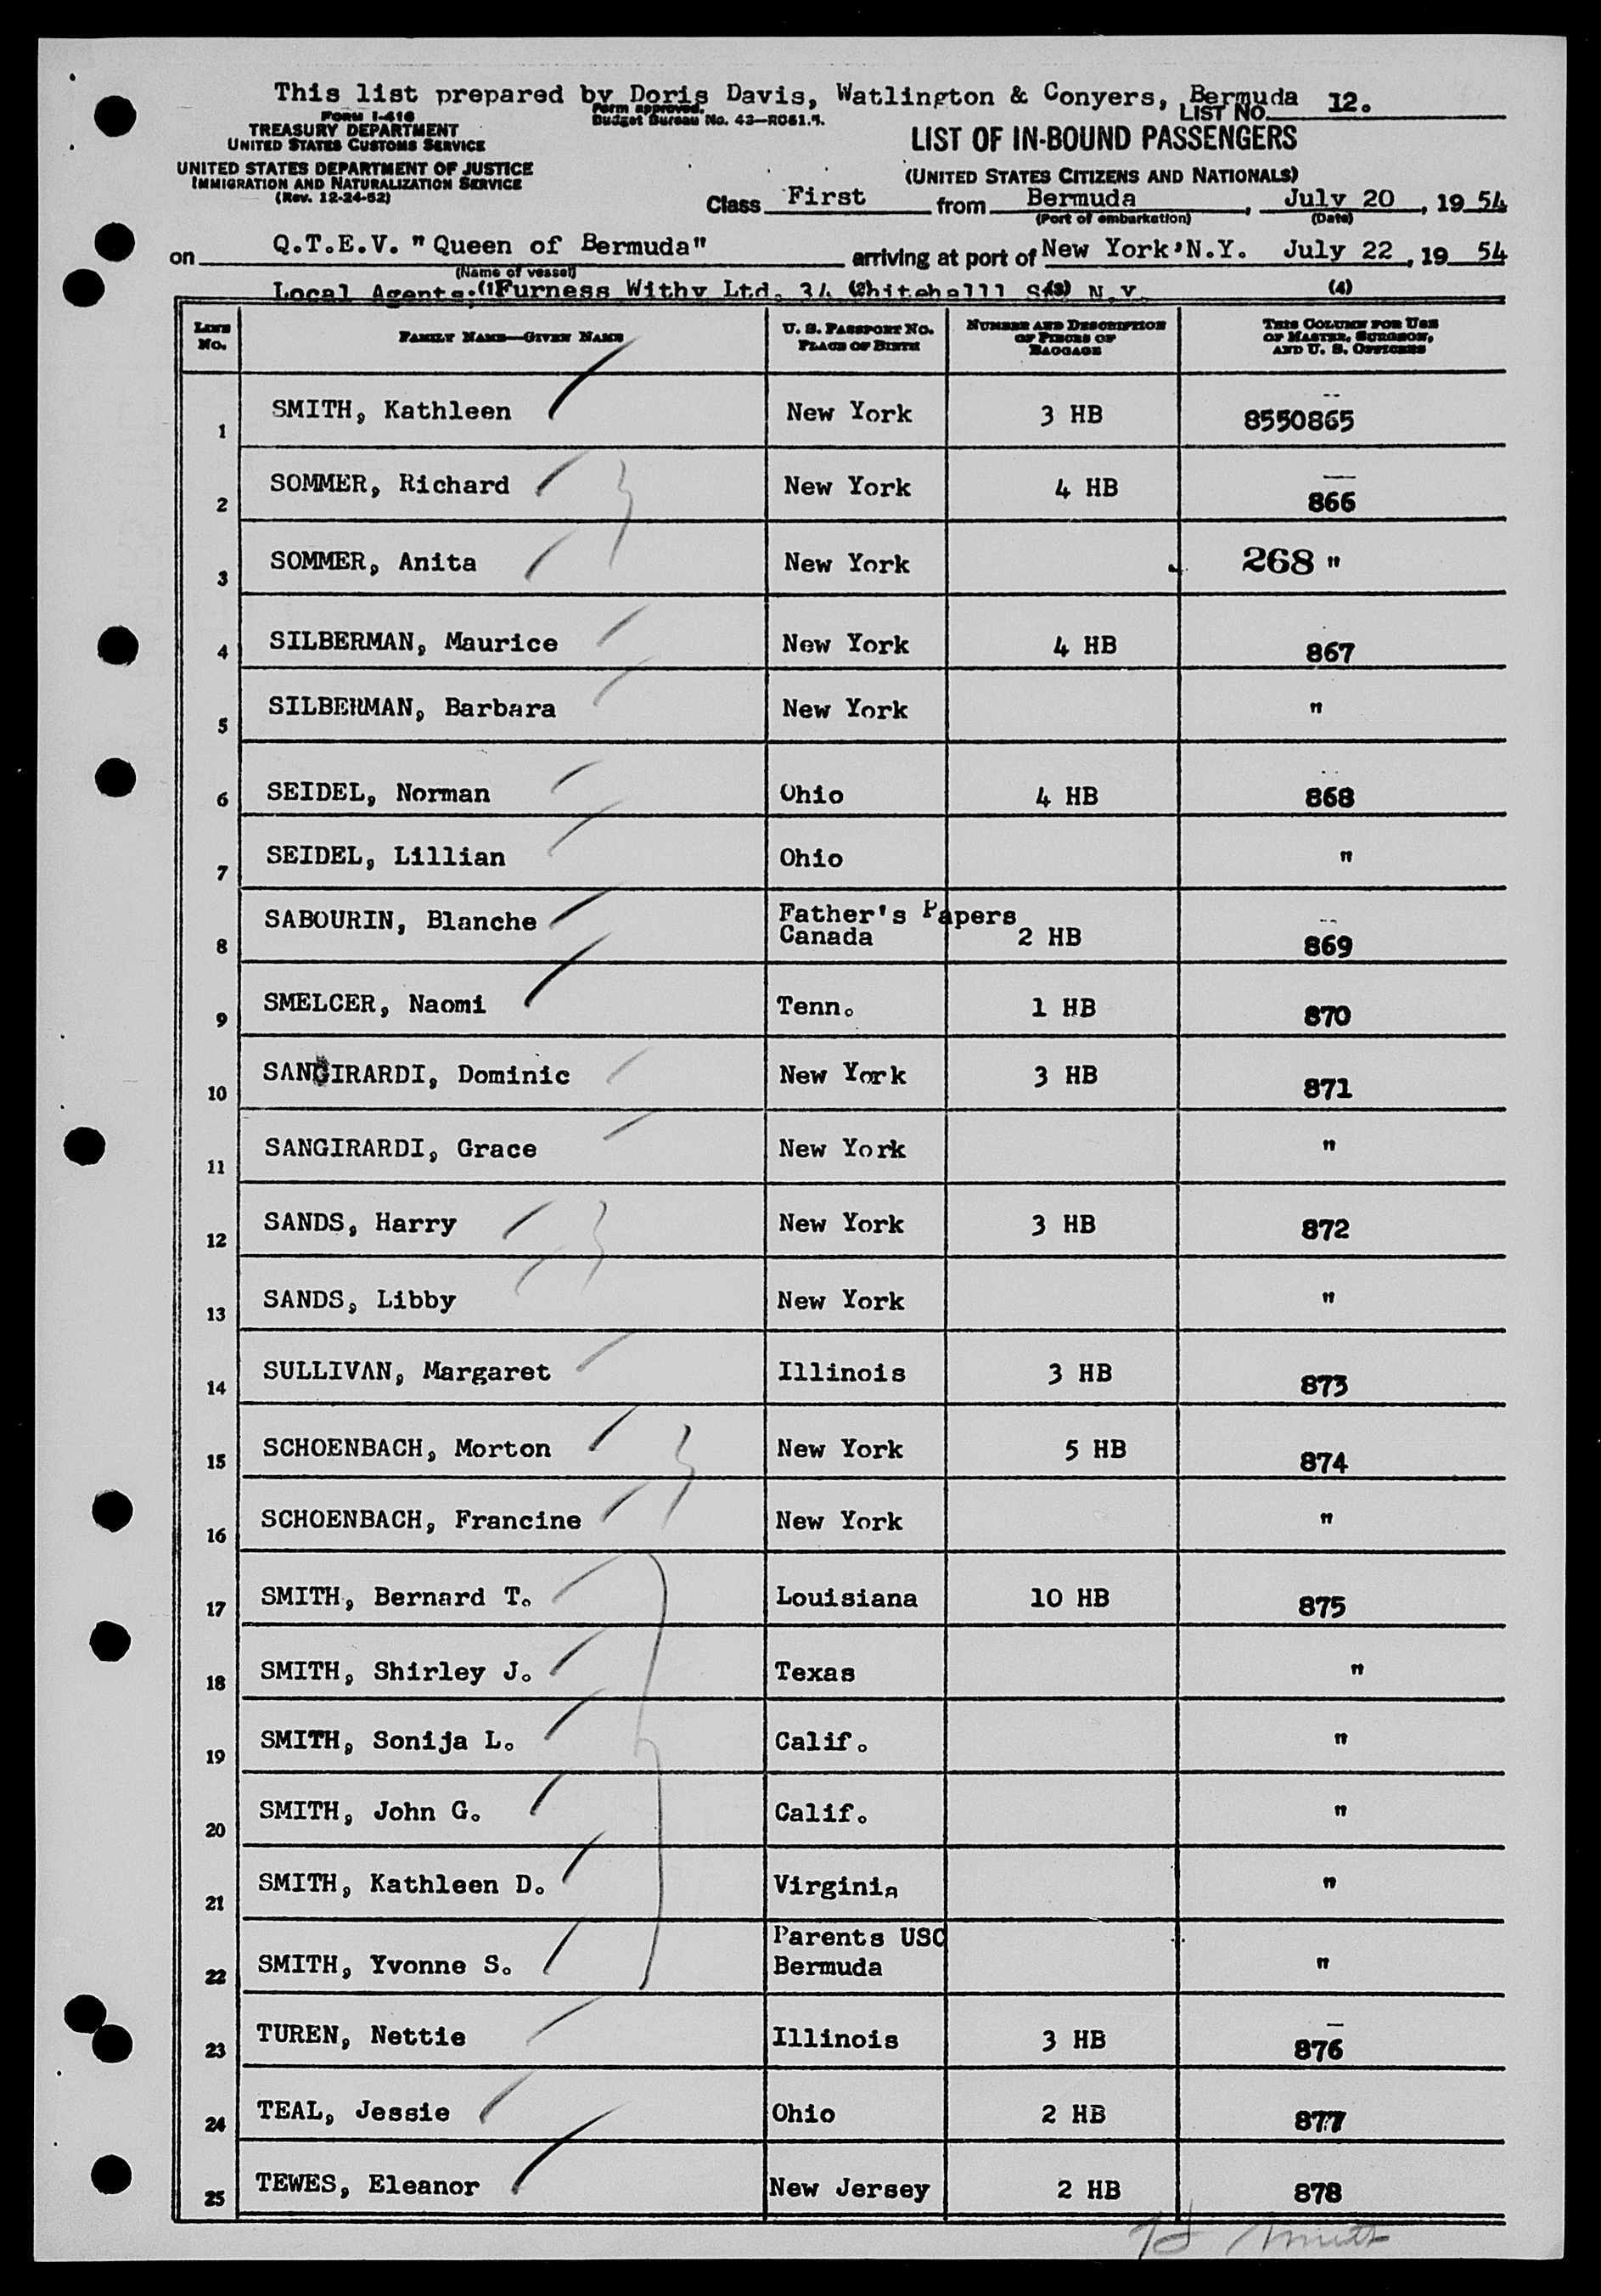 This list prepared by Doris Davis, Watlington & Conyers, Bermuda
LIST NO. 12.
FORM I-418
Form approved.
Budget Bureau No. 43—R081.4.
TREASURY DEPARTMENT
UNITED STATES CUSTOMS SERVICE
LIST OF IN-BOUND PASSENGERS
UNITED STATES DEPARTMENT OF JUSTICE
IMMIGRATION AND NATURALIZATION SERVICE
(Rev. 12-24-52)
(UNITED STATES CITIZENS AND NATIONALS)
Class First from Bermuda, July 20, 1954
(Port of embarkation) (Date)
on Q.T.E.V. "Queen of Bermuda" arriving at port of New York, N.Y. July 22, 1954
(Name of vessel)
Local Agents: (1) Furness Withy Ltd. 34 (2) Whitehall St (3) N.Y. (4)
LINE NO. FAMILY NAME—GIVEN NAME U. S. PASSPORT NO. PLACE OF BIRTH NUMBER AND DESCRIPTION OF PIECES OF BAGGAGE THIS COLUMN FOR USE OF MASTER, SURGEON, AND U. S. OFFICERS
1 SMITH, Kathleen New York 3 HB 8550865
2 SOMMER, Richard New York 4 HB 866
3 SOMMER, Anita New York 268 "
4 SILBERMAN, Maurice New York 4 HB 867
5 SILBERMAN, Barbara New York "
6 SEIDEL, Norman Ohio 4 HB 868
7 SEIDEL, Lillian Ohio "
8 SABOURIN, Blanche Father's Papers Canada 2 HB 869
9 SMELCER, Naomi Tenn. 1 HB 870
10 SANGIRARDI, Dominic New York 3 HB 871
11 SANGIRARDI, Grace New York "
12 SANDS, Harry New York 3 HB 872
13 SANDS, Libby New York "
14 SULLIVAN, Margaret Illinois 3 HB 873
15 SCHOENBACH, Morton New York 5 HB 874
16 SCHOENBACH, Francine New York "
17 SMITH, Bernard T. Louisiana 10 HB 875
18 SMITH, Shirley J. Texas "
19 SMITH, Sonija L. Calif. "
20 SMITH, John G. Calif. "
21 SMITH, Kathleen D. Virginia "
22 SMITH, Yvonne S. Parents USC Bermuda "
23 TUREN, Nettie Illinois 3 HB 876
24 TEAL, Jessie Ohio 2 HB 877
25 TEWES, Eleanor New Jersey 2 HB 878